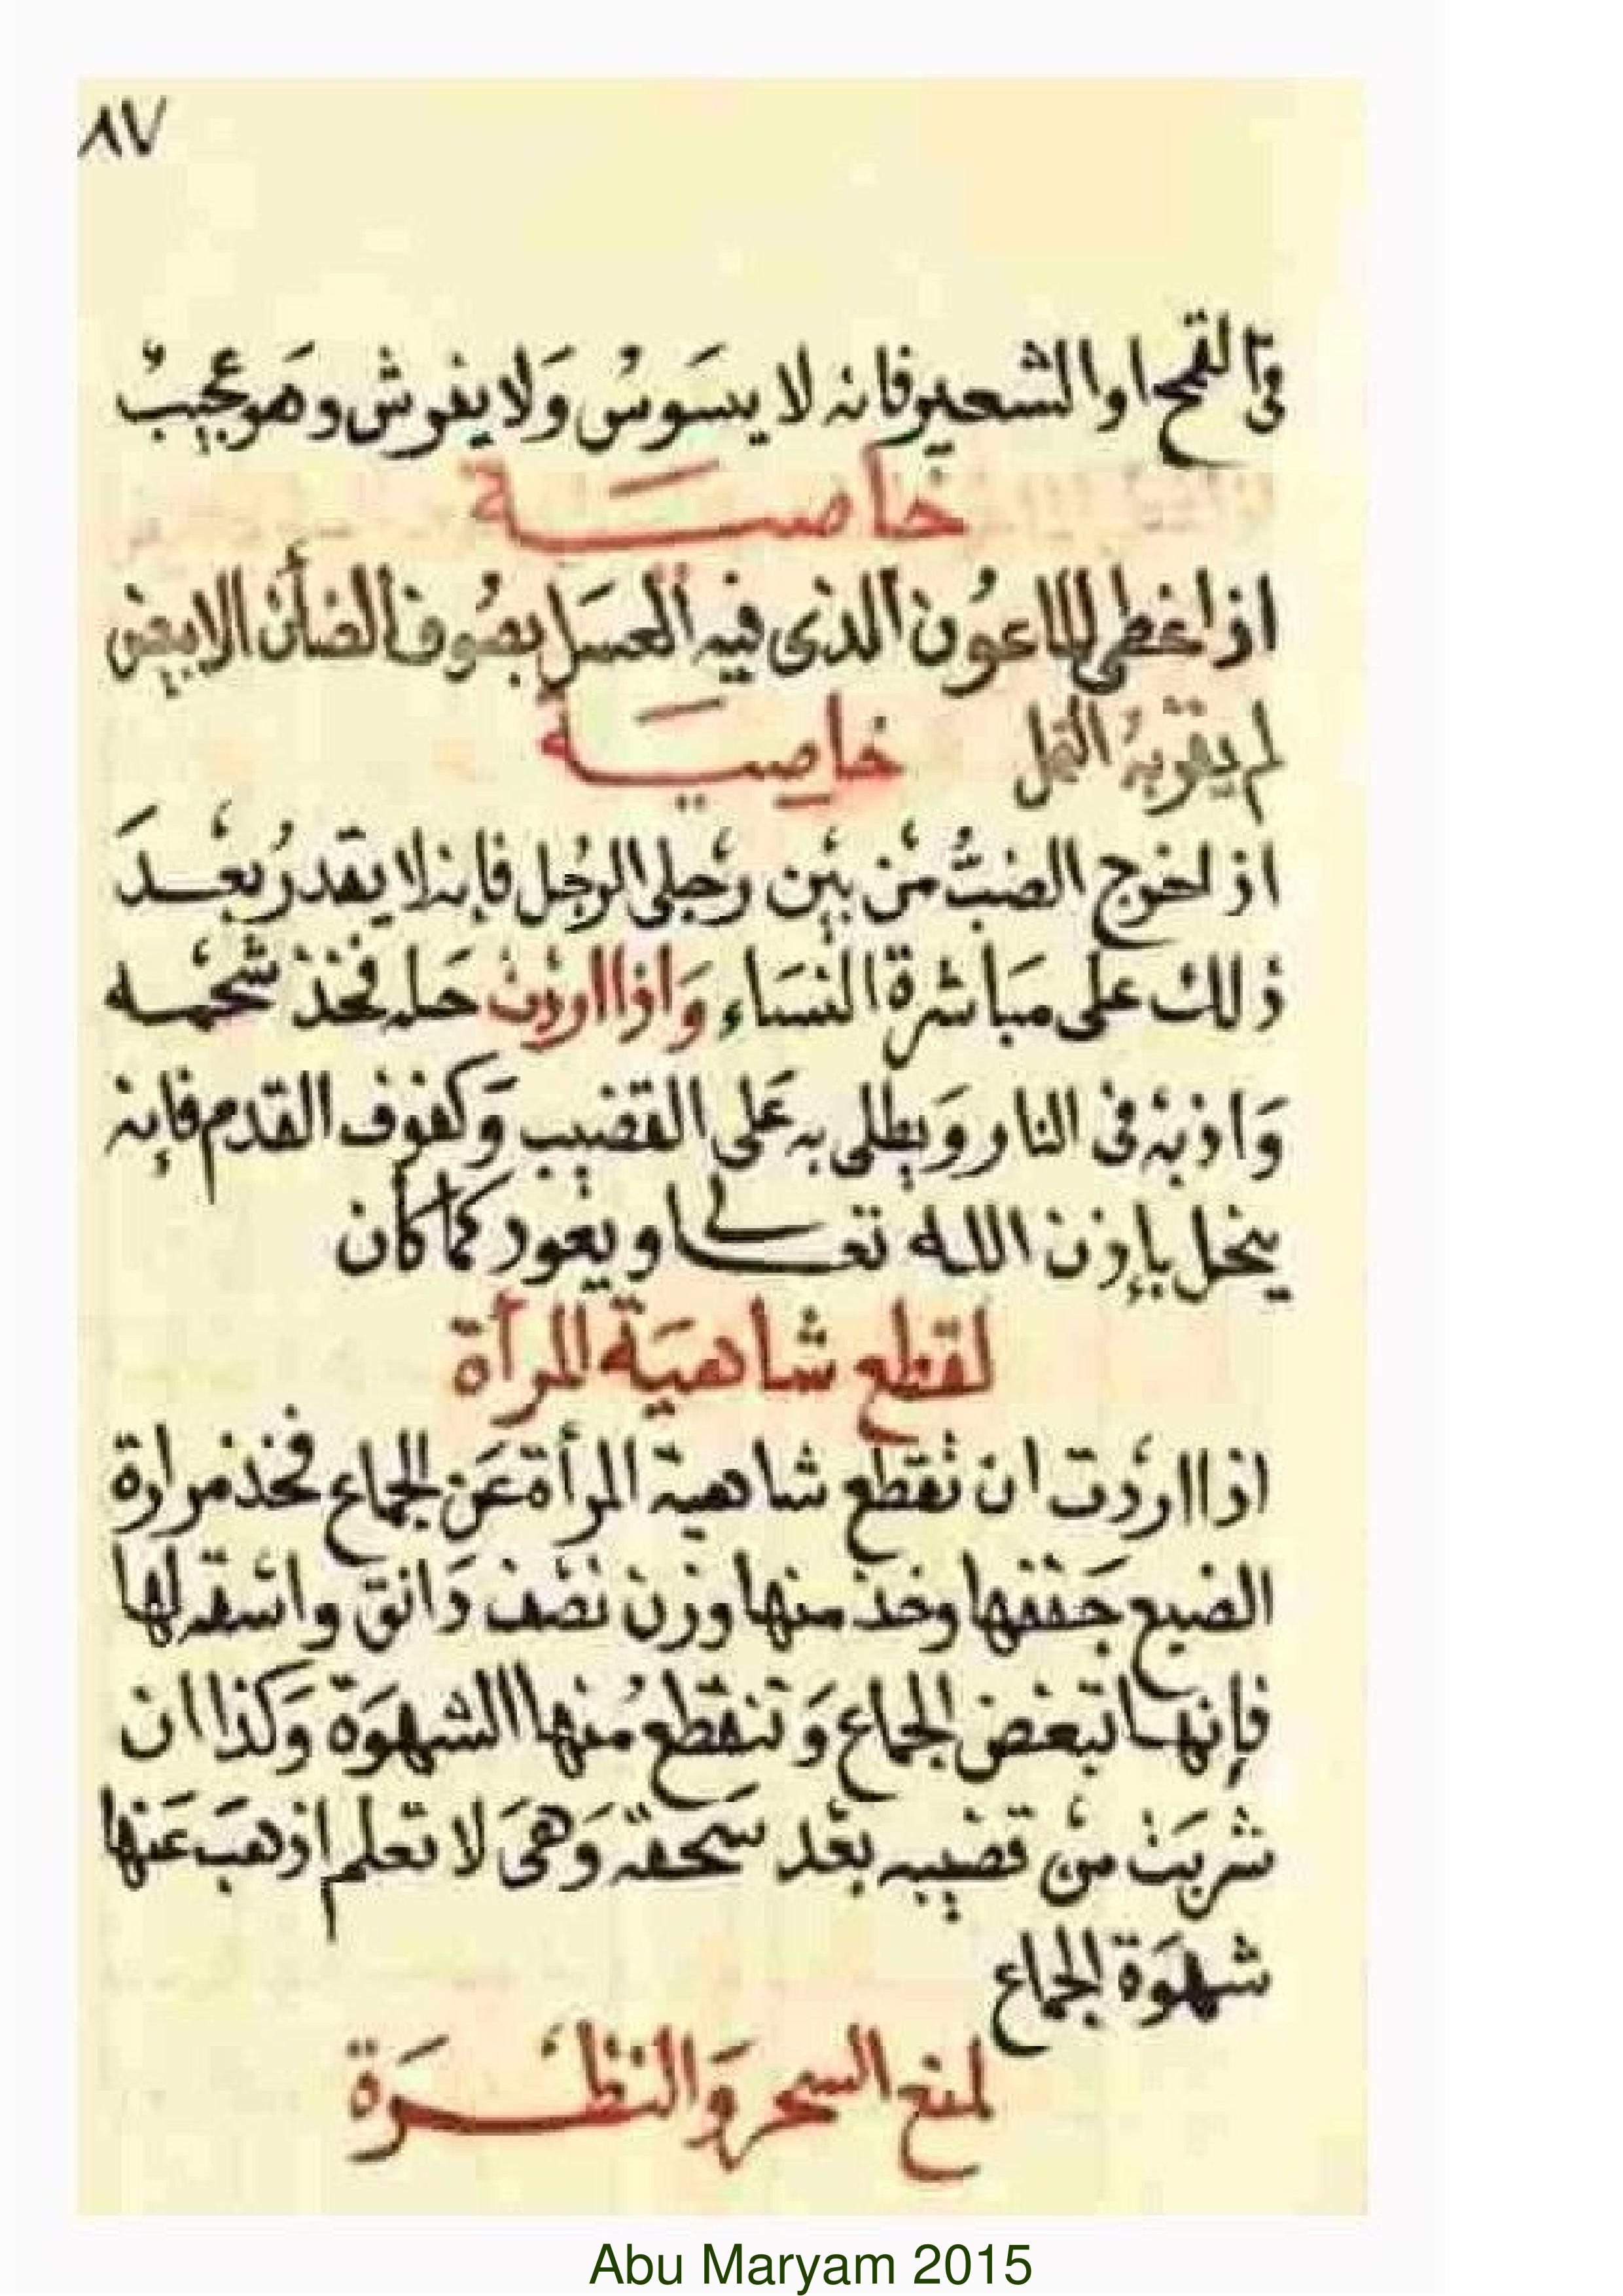 ٨٧
في القمح او الشعير فانه لا يسَوسُ وَلا يفرش وهَو عجيبٌ
خاصيَـــة
اذا غطى الماعُون الذى فيه العسَل بصُوف الضأن الابيض
لم يقربهُ النمل
خاصيَـــة
اذا خرج الضبُّ منْ بيْن رجْلي الرجُل فانه لا يقدرُ بعْــدَ
ذلك على مبَاشرة النسَاء وَاذا اردْت حَله فخذ شحْمــه
وَاذبْه فى النار وَيطلى به عَلى القضيب وَكفوف القدم فإنه
ينحل بإذن الله تعــالى ويعود كما كان
لقطع شاهيَة المرأة
اذا اردْت ان تقطع شاهية المرأة عَن الجماع فخذ مرارة
الضبع جَففها وخذ منها وزن نصْف دَانق واسْقه لها
فإنهــا تبغض الجماع وَتنقطع منْها الشهوَة وَكذا ان
شربَتْ منْ قضيبه بعْد سَحقه وَهىَ لا تعلم اذهبَ عَنها
شهوَة الجماع
لمنع السحر وَالنظْــرَة
Abu Maryam 2015